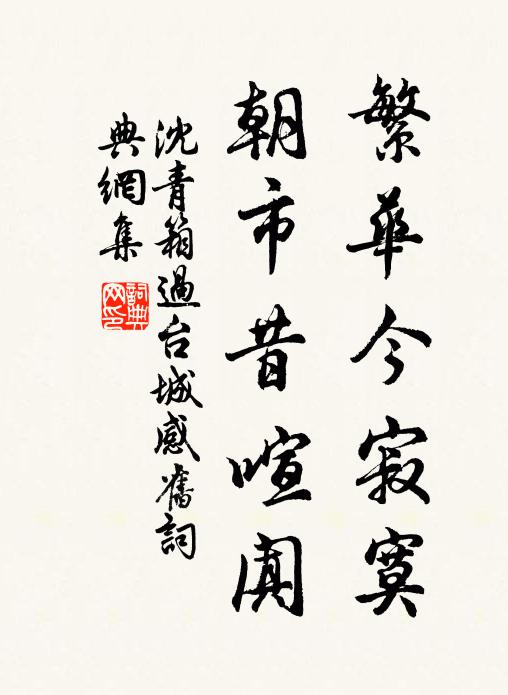 繁華今寂寞
朝市昔喧闐
沈青箱過台城感舊詞
典網集
詞典
网印